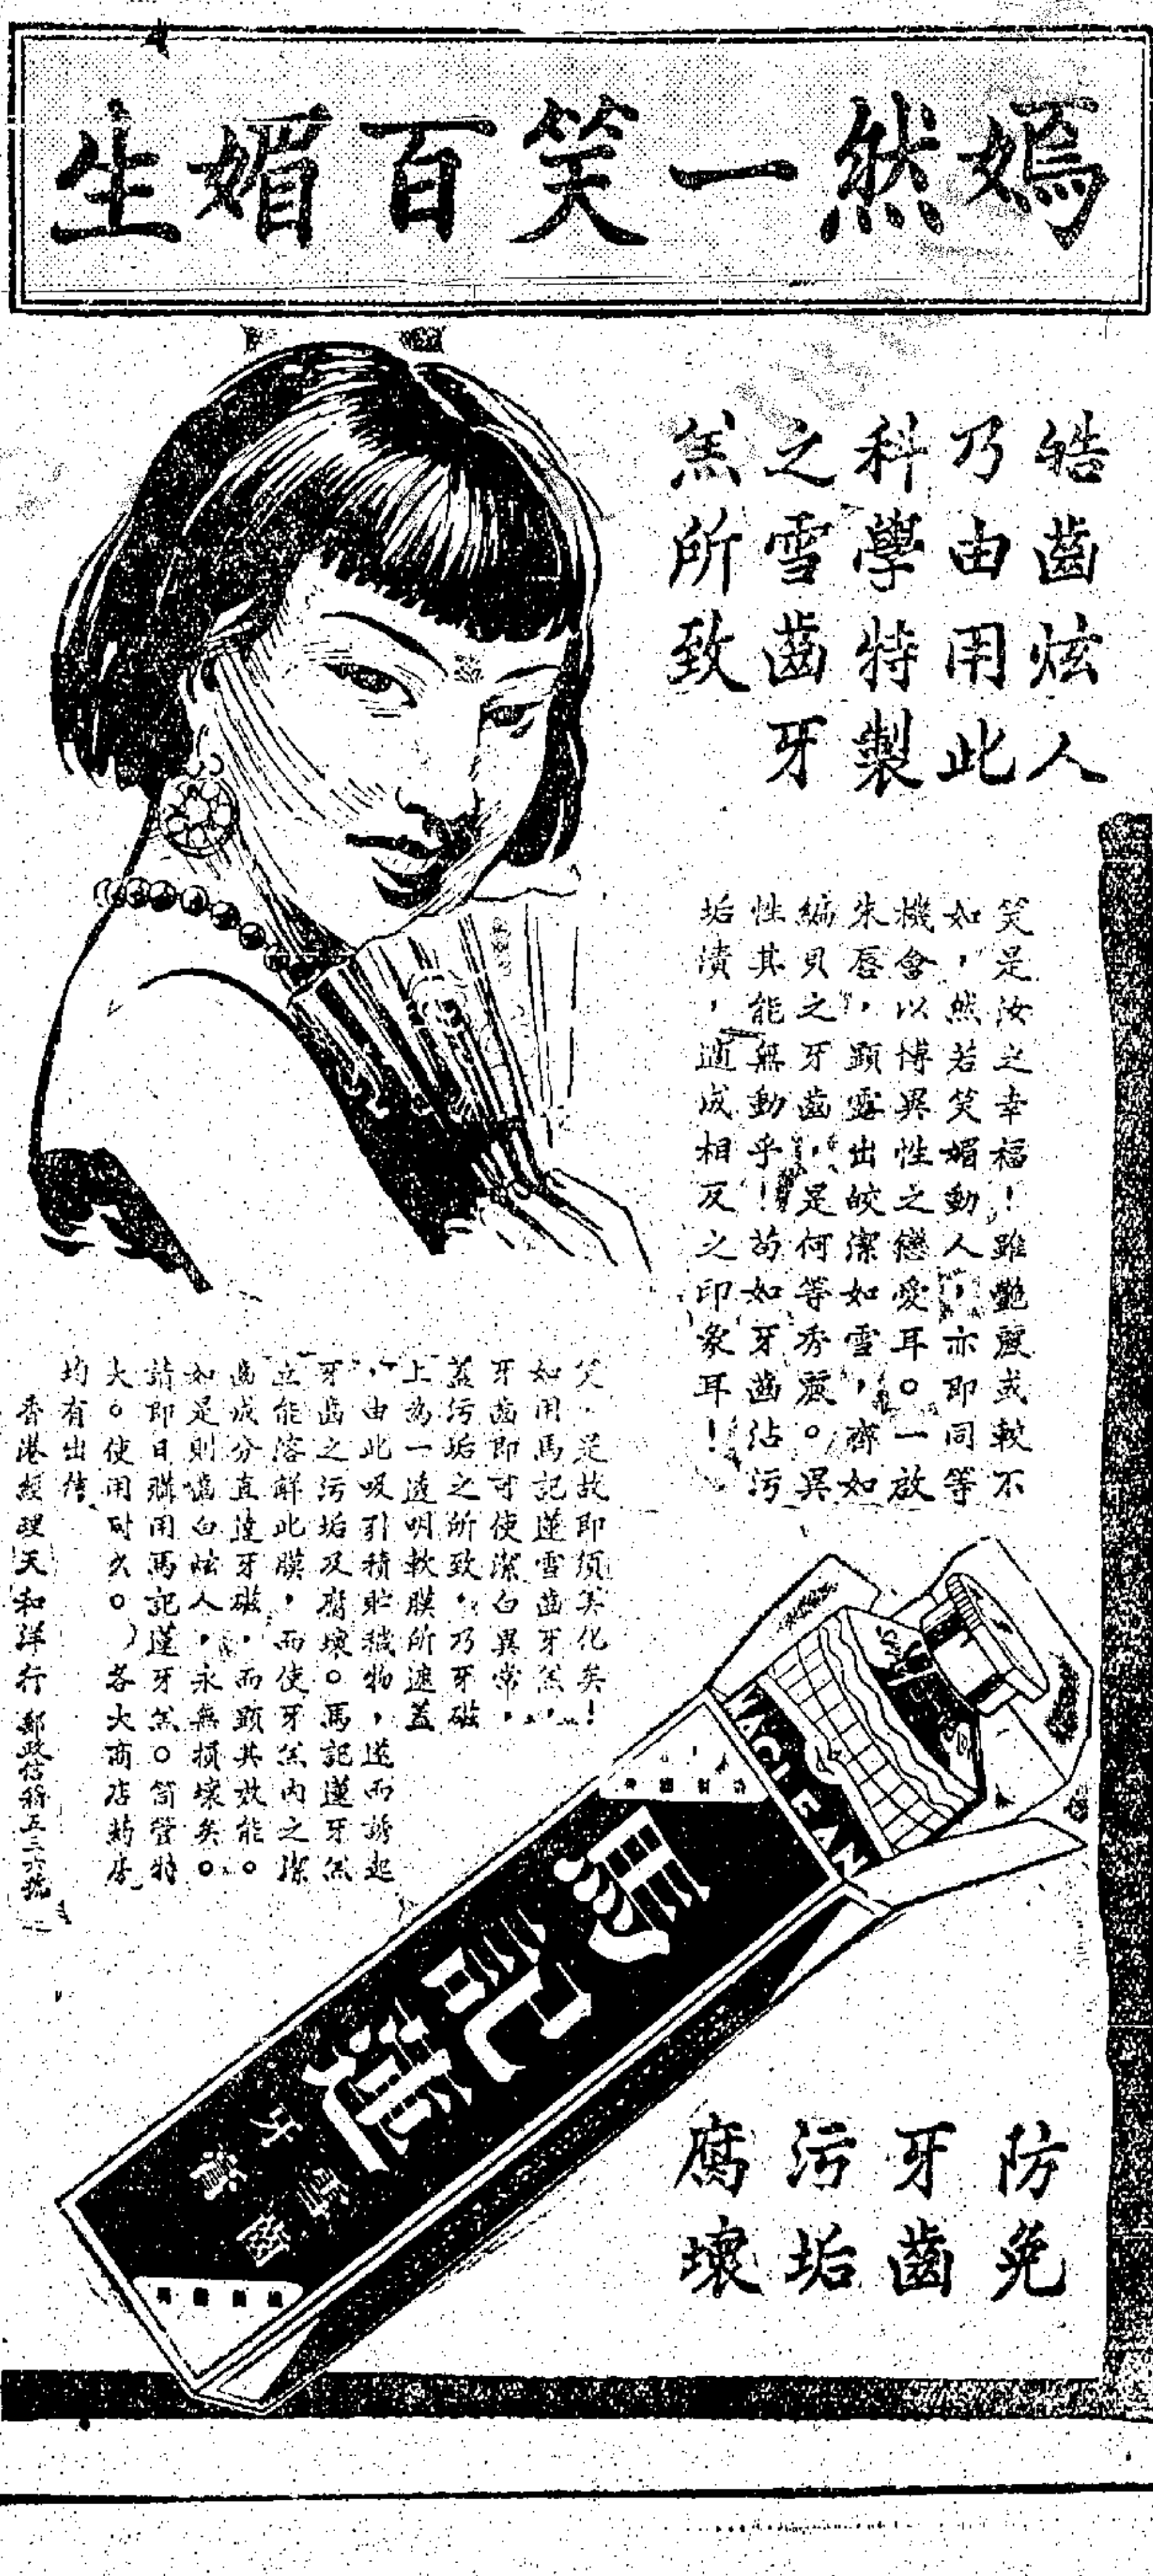 嫣然一笑百媚生
皓齒炫人
乃由用此
科學特製
之雪齒牙
羔所致
笑是汝之幸福！雖艷麗或較不
如，然若笑媚動人，亦即同等
機會以博異性之戀愛耳。一啟
朱唇，顯露出皎潔如雪，齊如
編貝之牙齒，是何等秀麗。異
性其能無動乎！苟如牙齒沾污
垢漬，適成相反之印象耳！
笑，是故即須美化矣！
如用馬記蓮雪齒牙羔，
牙齒即可使潔白異常，
蓋污垢之所致，乃牙磁
上為一透明軟膜所遮蓋
，由此吸引積貯穢物，遂而誘起
牙齒之污垢及腐壞。馬記蓮牙羔
立能溶解此膜，而使牙羔內之潔
齒成分直達牙磁，而顯其效能。
如是則齒白炫人，永無損壞矣。
請即日購用馬記蓮牙羔。筒管特
大。使用耐久。）各大商店葯房
均有出售
香港經理天和洋行 郵政信箱五三六號
MACLEAN
馬記蓮
雪齒
牙膏
防免
牙齒
污垢
腐壞